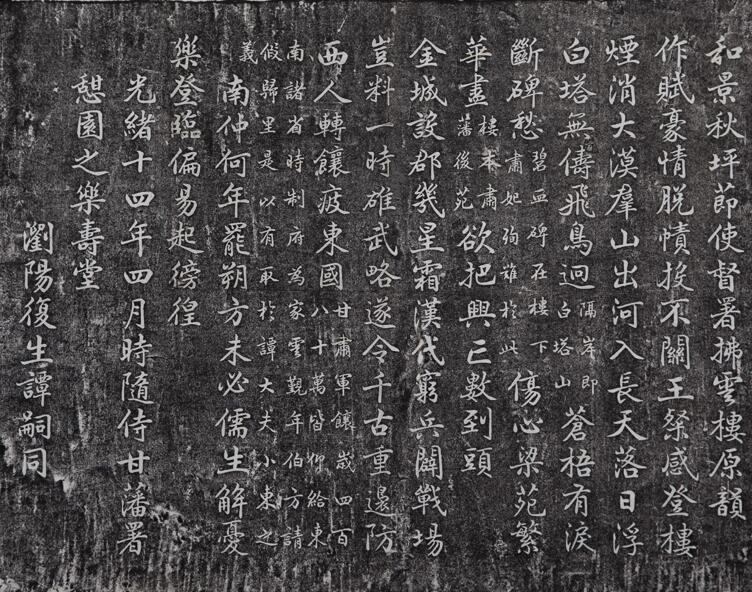 和景秋坪莭使督署拂雲樓原韻
作賦豪情脫幘投不關王粲感登樓
煙消大漠羣山出河入長天落日浮
白塔無儔飛鳥迥隔岸即白塔山蒼梧有淚
斷碑愁碧血碑在樓下肅妃殉難於此傷心梁苑繁
華盡樓本肅藩後苑欲把興亡數到頭
金城設郡幾星霜漢代窮兵闢戰場
豈料一時雄武略遂令千古重邊防
西人轉饟疲東國甘肅軍饟歲四百八十萬皆仰給東
南諸省時制府為家雲覲年伯方請
假歸里是以有取於譚大夫小東之
義南仲何年罷朔方未必儒生解憂
樂登臨偏易起徬徨
光緒十四年四月時隨侍甘藩署
憩園之樂壽堂
瀏陽復生譚嗣同